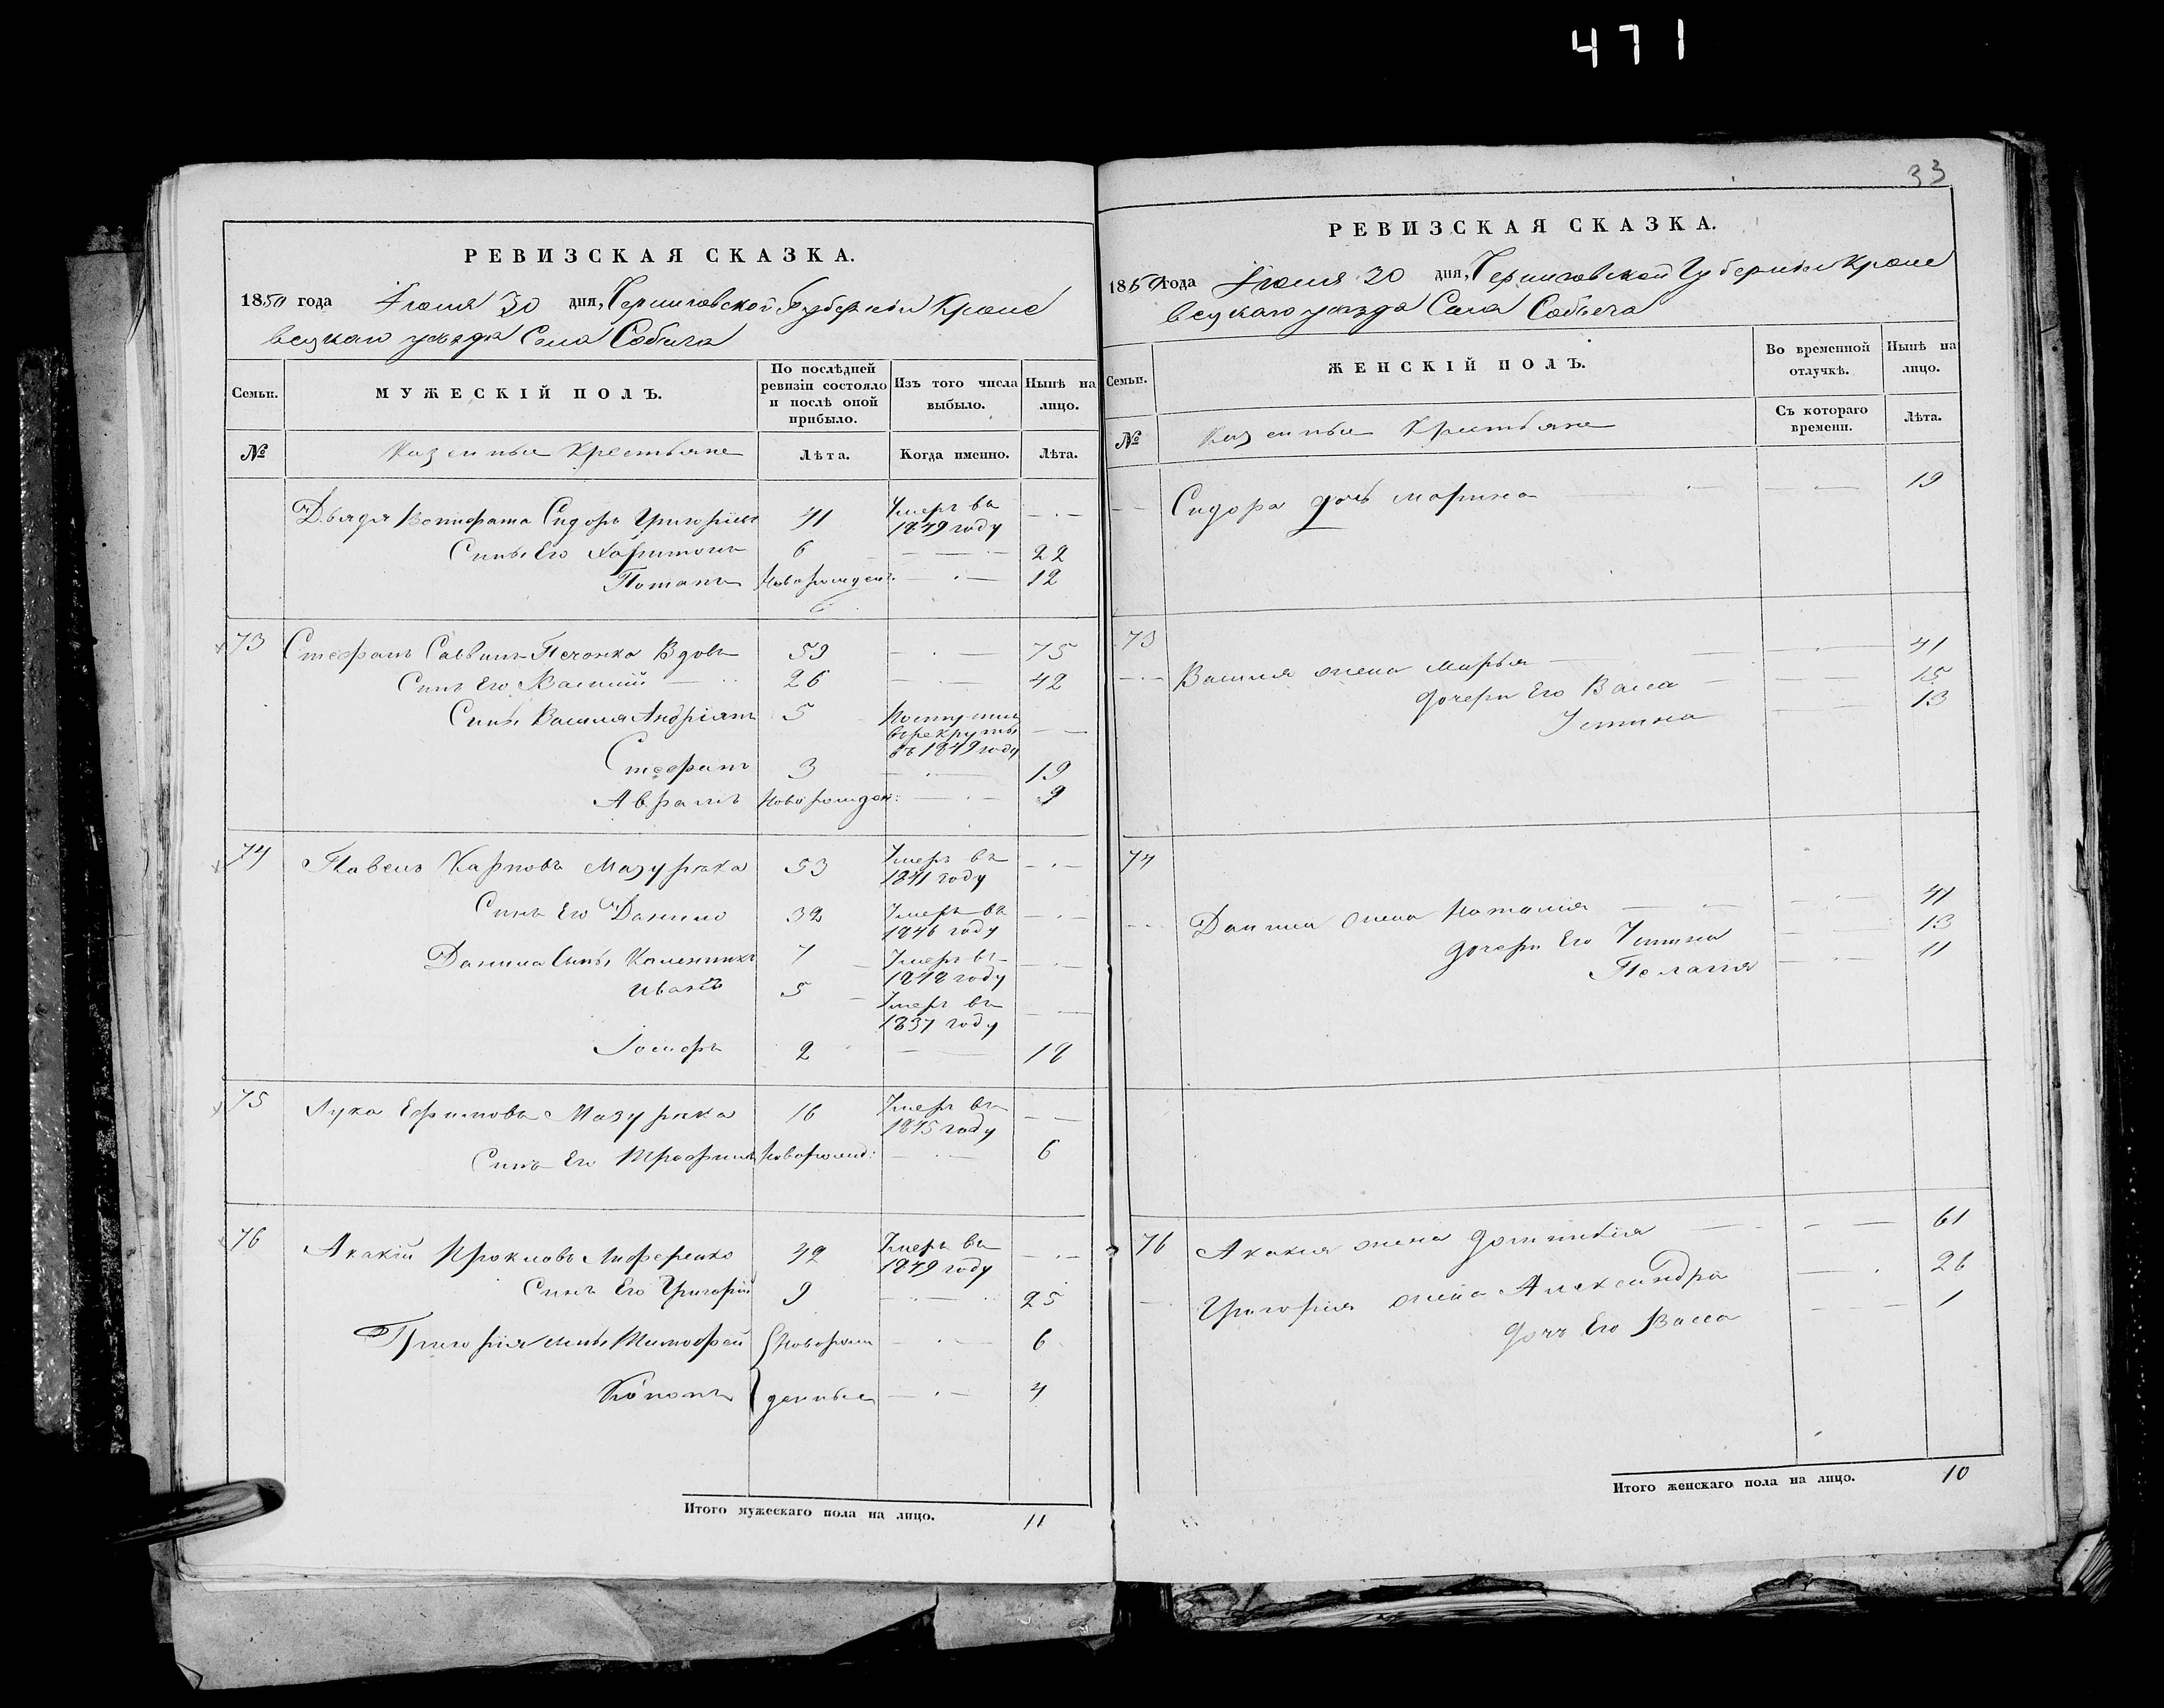 471
РЕВИЗСКАЯ СКАЗКА.
1850 года Іюня 30 дня, Черниговской Губерніи Кроле
вецкаго уѣзда Села Собича
Семьи.
МУЖЕСКІЙ ПОЛЪ.
По послѣдней ревизіи состояло и послѣ оной прибыло.
Изъ того числа выбыло.
Нынѣ на лицо.
№
Казенные Крестьяне
Лѣта.
Когда именно.
Лѣта.
Дядя Сидоръ Григорьевъ 41 Умеръ въ 1849 году
Сыны Его Харитонъ 6 22
Потапъ Новорожден: 12
73 Стефанъ Саввинъ Печонка Вдовъ 59 75
Сынъ Его Василій 26 42
Сыны Василія Андріянъ 5 Поступилъ въ рекруты въ 1849 году
Стефанъ 3 19
Аврамъ Новорожден: 9
74 Павелъ Карповъ Мазурка 53 Умеръ въ 1841 году
Сынъ Его Данило 32 Умеръ въ 1846 году
Данила Сыны Калиникъ 7 Умеръ въ 1848 году
Иванъ 5 Умеръ въ 1837 году
Іосифъ 2 18
75 Лука Ефимовъ Мазурка 16 Умеръ въ 1845 году
Сынъ Его Трофимъ Новорожд: 6
76 Акакій Прокловъ 42 Умеръ въ 1849 году
Сынъ Его Григорій 9 25
Григорія сыны Тимофей Новорож 6
Кононъ денные 4
Итого мужескаго пола на лицо. 11
33
РЕВИЗСКАЯ СКАЗКА.
1850 года Іюня 30 дня, Черниговской Губерніи Кроле
вецкаго уѣзда Села Собича
Семьи.
ЖЕНСКІЙ ПОЛЪ.
Во временной отлучкѣ.
Нынѣ на лицо.
№
Казенные Крестьяне
Съ котораго времени.
Лѣта.
Сидора дочь Марина 19
73
Василія жена Марья 41
дочери Его Васса 15
Устина 13
74
Данила жена Наталія 41
дочери Его Устина 13
Пелагія 11
76 Акакія жена Домникія 61
Григорія жена Александра 26
дочь Его Васса 1
Итого женскаго пола на лицо. 10